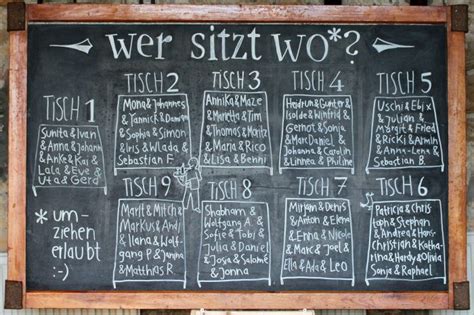 wer sitzt wo*?
TISCH 1
Sunita & Ivan
& Anna & Johann
& Anke & Kai &
Lale & Eve &
Uta & Gerd
TISCH 2
Mona & Johannes
& Yannick & Damian
& Sophia & Simon
& Iris & Wlada &
Sebastian F.
TISCH 3
Annika & Maze
& Marietta & Tim
& Thomas & Moritz
& Maria & Rico
& Lisa & Benni
TISCH 4
Heidrun & Gunter &
Isolde & Winfrid &
Gernot & Sonja
& Marc Daniel &
Johannes & Carolin &
Linnea & Philine
TISCH 5
Uschi & Ekix
& Julian &
Margit & Fried
& Ricki & Armin
& Anna-Lena &
Sebastian B.
TISCH 9
Marit & Mitch &
Markus & Andy
& Ilana & Wolf-
gang P & Janina
& Matthias R
TISCH 8
Shabnam &
Wolfgang A. &
Sofie & Tobi &
Julia & Daniel
& Josh & Salome
& Jonna
TISCH 7
Mirjam & Denis
& Anton & Elena
& Enna & Nicole
& Marc & Joel &
Ella & Ada & Leo
TISCH 6
Patricia & Chris
toph & Stephan
& Andrea & Hans-
Christian & Katha-
rina & Hardy &
Sonja & Raphael
* um-
ziehen
erlaubt
:-)